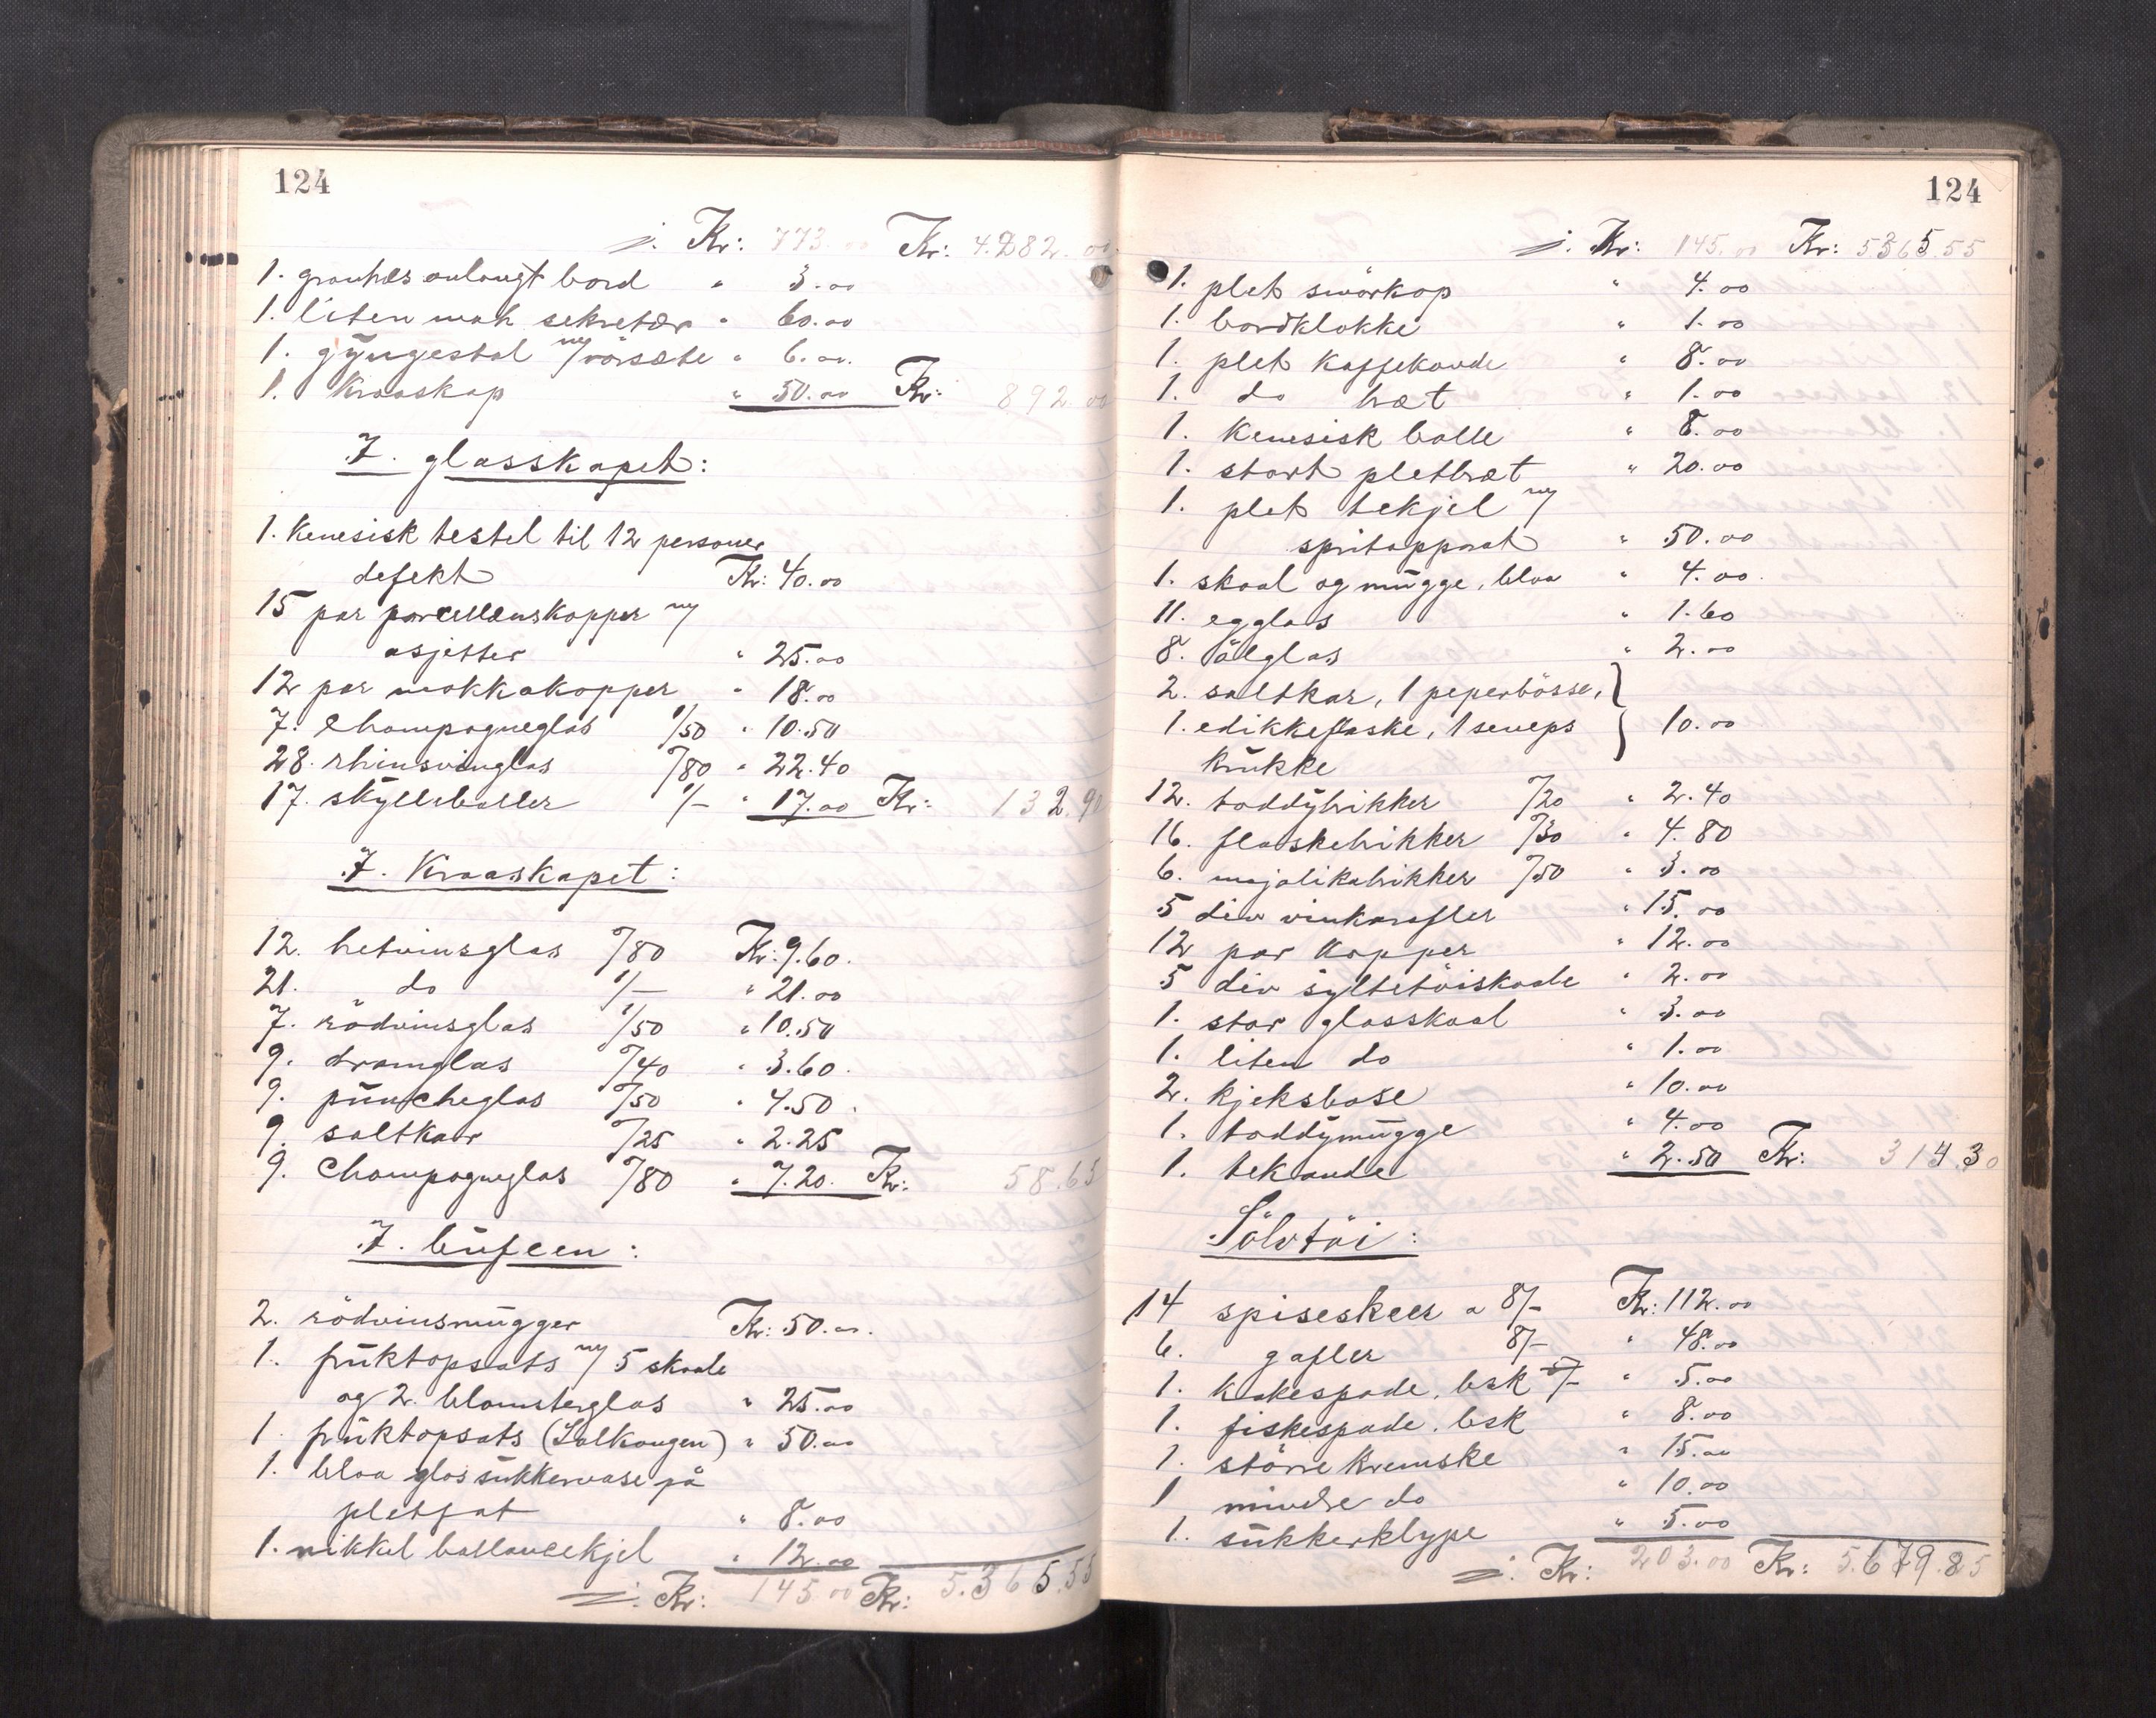 124
∴ Kr: 773.00 Kr: 4.282.00
1. graahvs avlangt bord " 3.00
1. liten mah sekretær " 60.00
1. gyngestol m/ rörsæte " 6.00.
1. Kroaskap " 50.00 Kr: 892.00
I. glasskapet:
1. Kinesisk testel til 12 personer
defekt Kr: 40.00
15 par porcellænskopper m/
asjetter " 25.00
12 par mokkakopper " 18.00
7. Champagneglas 1/50 " 10.50
28. rhinsvinglas "/80 " 22.40
17. skylleboller 1/- " 17.00 Kr: 132.90
I. Kroaskapet:
12. hetvinsglas "/80 Kr: 9.60.
21. do 1/- " 21.00
7. rödvinsglas 1/50 " 10.50
9. dramglas "/40 " 3.60.
9. püncheglas "/50 " 4.50.
9. saltkar "/25 " 2.25
9. Champagneglas "/80 " 7.20. Kr: 58.65
I. büfeen:
2. rödvinsmügger Kr: 50.00.
1. früktopsats m/ 5 skaale
og 2. blomsterglas " 25.00
1. früktopsats (Salkongen) " 50.00
1. blaa glas sükkervase på
pletfat " 8.00
1. nikkel ballancekjel " 12.00
∴ Kr: 145.00 Kr: 5.365.55
124
∴ Kr: 145.00 Kr: 5365.55
1. plet smörkop " 4.00
1. bordklokke " 1.00
1. plet kaffekande " 8.00
1. do bræt " 1.00
1. Kinesisk bolle " 8.00
1. stort pletbræt " 20.00
1. plet tekjel m/
spritapparat " 50.00
1. skaal og mügge, blaa " 4.00.
11. egglas " 1.60
8. ölglas " 2.00
2. saltkar, 1 peperbösse, }
1. edikkeflaske, 1 seneps } 10.00
krükke
12. toddybrikker "/20 " 2.40
16. flaskebrikker "/30 " 4.80
6. majolikabrikker "/50 " 3.00
5 div vinkarafler " 15.00
12 par kopper " 12.00
5 div syltetöiskaale " 2.00
1. stor glasskaal " 3.00
1. liten do " 1.00
2. kjeksbokse " 10.00
1. toddymügge " 4.00
1. tekande " 2.50 Kr: 314.30
Sölvtöi:
14 spiseskeer a 8/- Kr: 112.00
6. gafler 8/- " 48.00
1. kakespade, besk 5/- " 5.00
1. fiskespade, besk " 8.00
1. större kremske " 15.00
1 mindre do " 10.00
1. sükkerklype " 5.00
∴ Kr: 203.00 Kr: 5.679.85